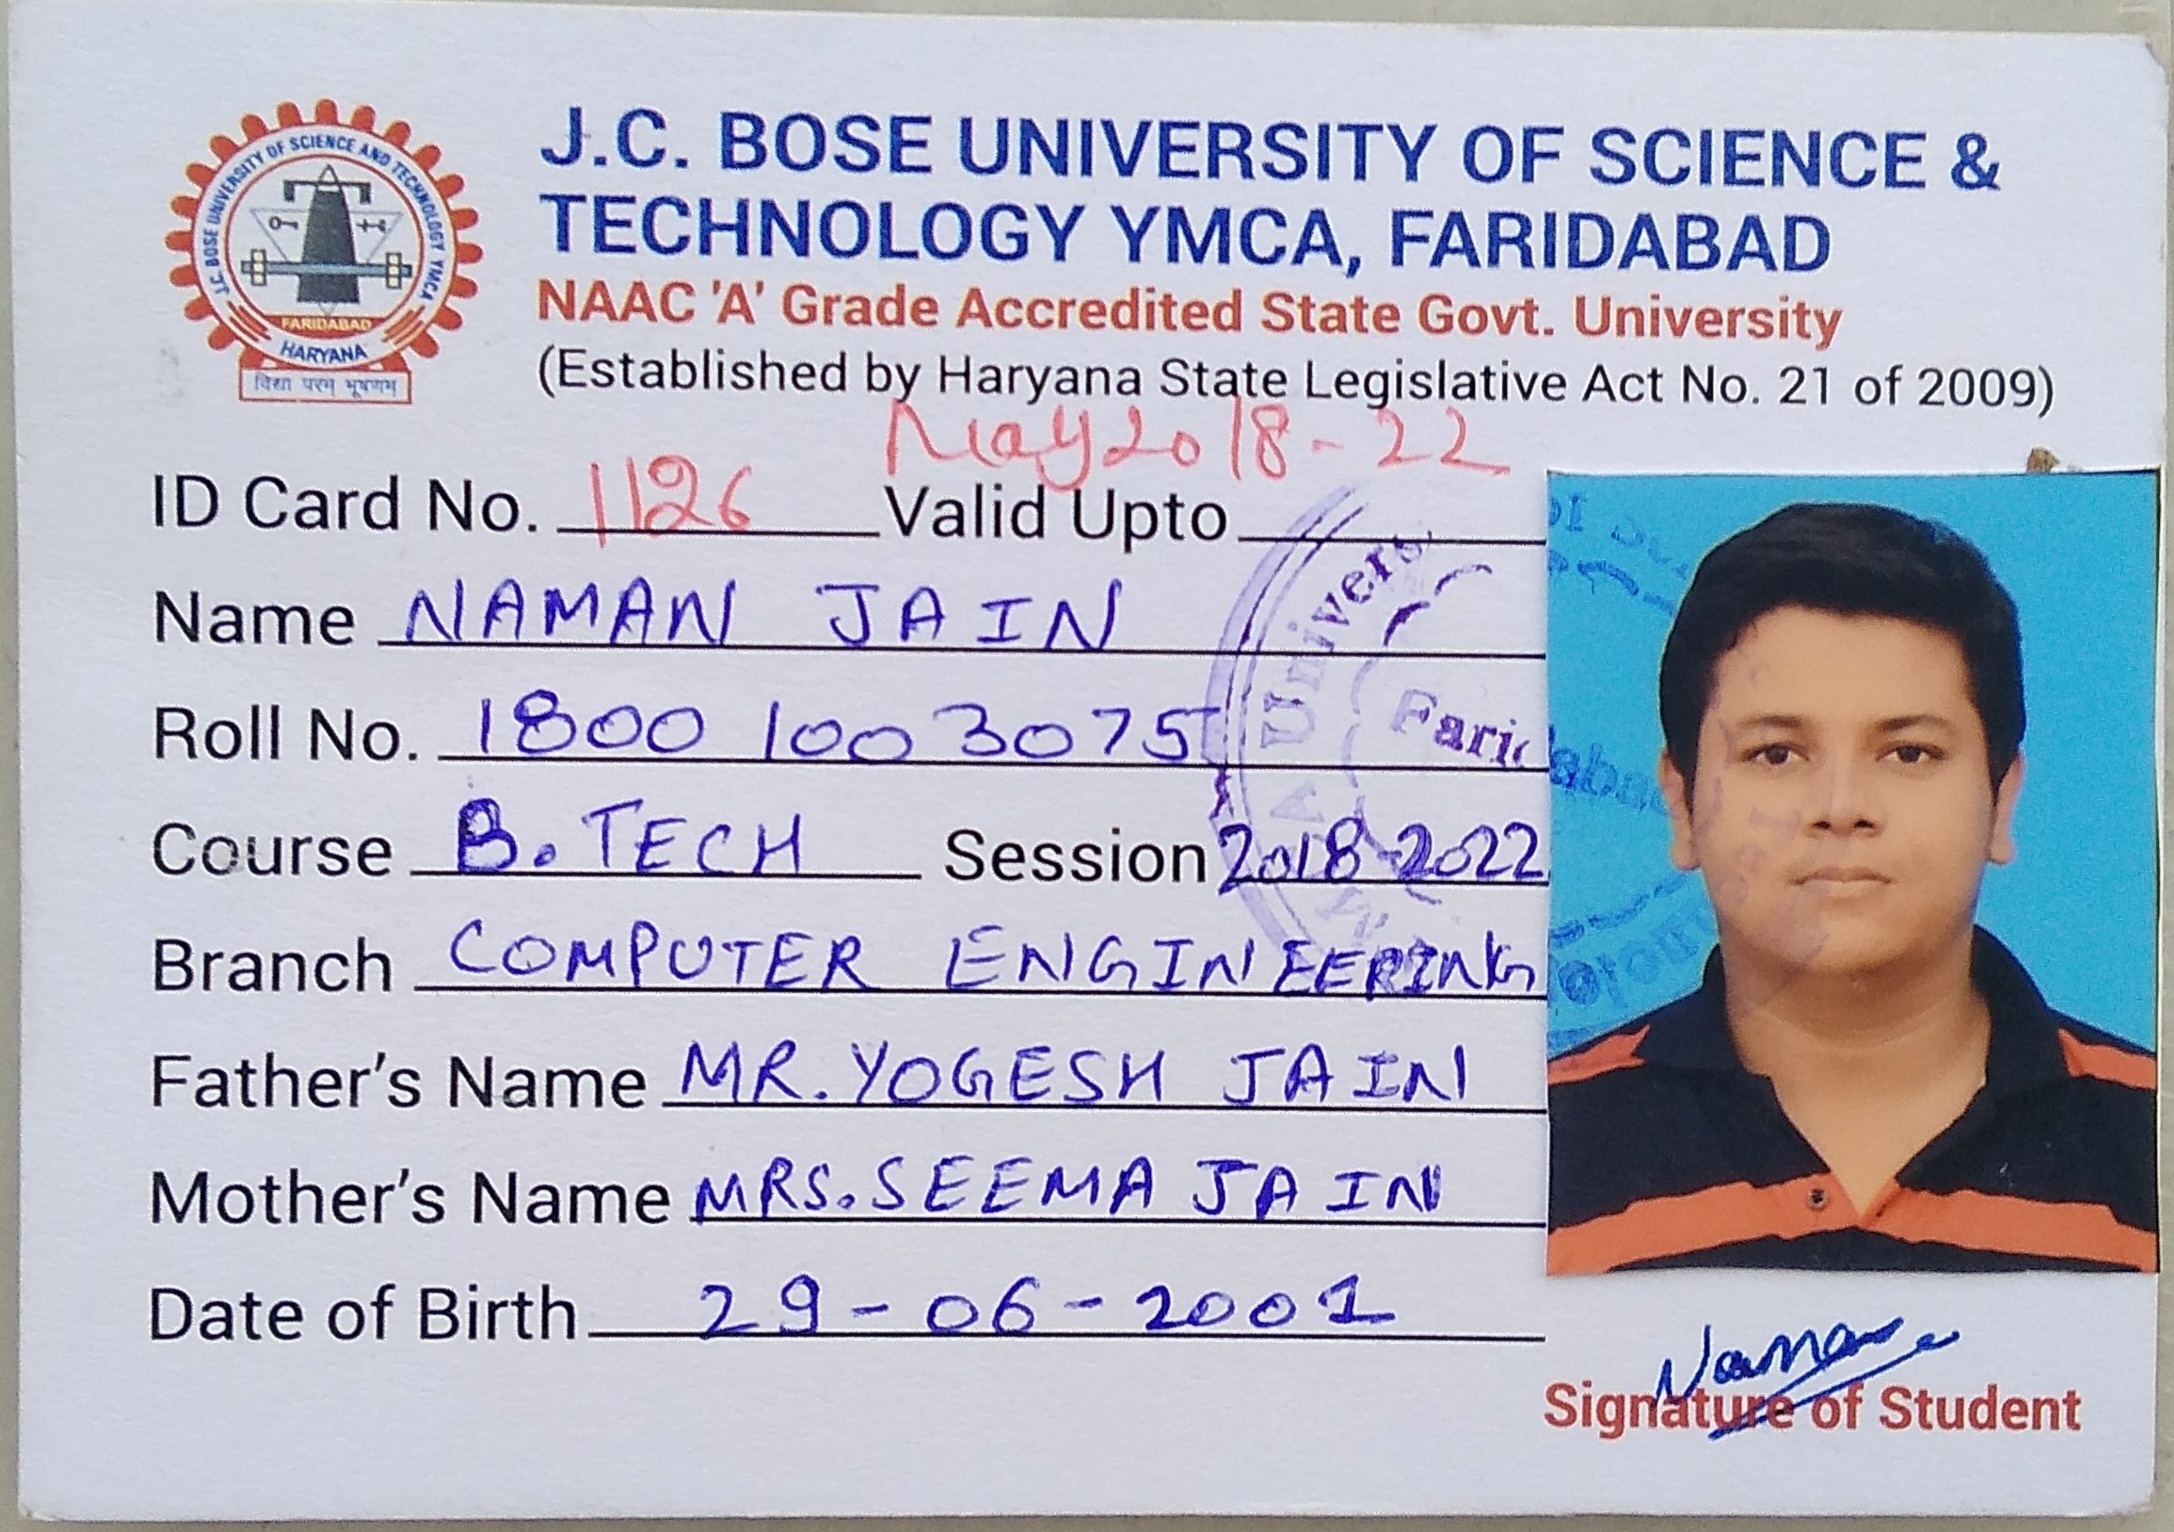 J.C. BOSE UNIVERSITY OF SCIENCE AND TECHNOLOGY YMCA
FARIDABAD
HARYANA
विद्या परम् भूषणम्
J.C. BOSE UNIVERSITY OF SCIENCE &
TECHNOLOGY YMCA, FARIDABAD
NAAC 'A' Grade Accredited State Govt. University
(Established by Haryana State Legislative Act No. 21 of 2009)
May 2018-22
ID Card No. 1126 Valid Upto
Name NAMAN JAIN
Roll No. 1800 100 3075
Course B.TECH Session 2018-2022
Branch COMPUTER ENGINEERING
Father's Name MR. YOGESH JAIN
Mother's Name MRS. SEEMA JAIN
Date of Birth 29-06-2001
Naman
Signature of Student